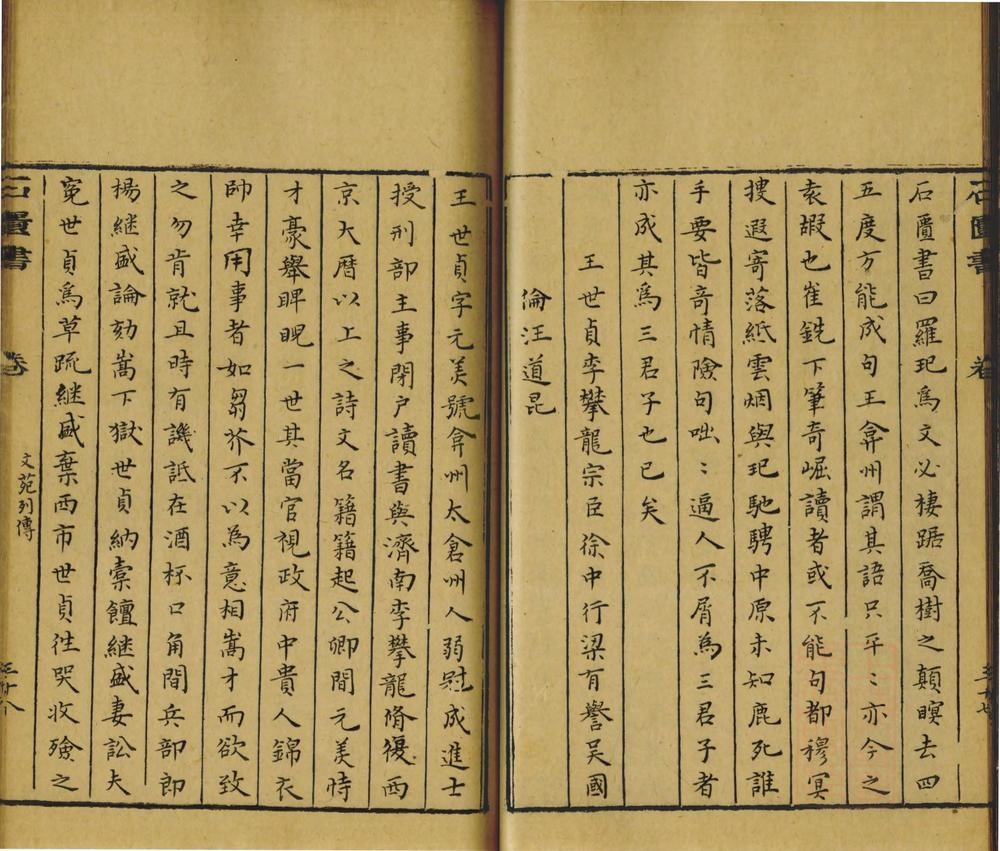 石匱書 卷
石匱書曰羅玘爲文必棲踞喬樹之顛瞑去四
五度方能成句王弇州謂其語只平〻亦今之
袁嘏也崔銑下筆奇崛讀者或不能句都穆冥
搜遐寄落紙雲烟與玘馳騁中原未知鹿死誰
手要皆奇情險句咄〻逼人不屑為三君子者
亦成其爲三君子也已矣
王世貞李攀龍宗臣徐中行梁有譽吴國
倫汪道昆
王世貞字元美號弇州太倉州人弱冠成進士
授刑部主事閉户讀書與濟南李攀龍脩復西
京大曆以上之詩文名籍籍起公卿間元美恃
才豪舉睥睨一世其當官視政府中貴人錦衣
帥幸用事者如芻芥不以為意相嵩才而欲致
之勿肯就且時有譏詆在酒杯口角間兵部郎
楊継盛論劾嵩下獄世貞納槖饘継盛妻訟夫
寃世貞爲草疏継盛棄西市世貞徃哭收殮之
石匱書 卷 文苑列傳